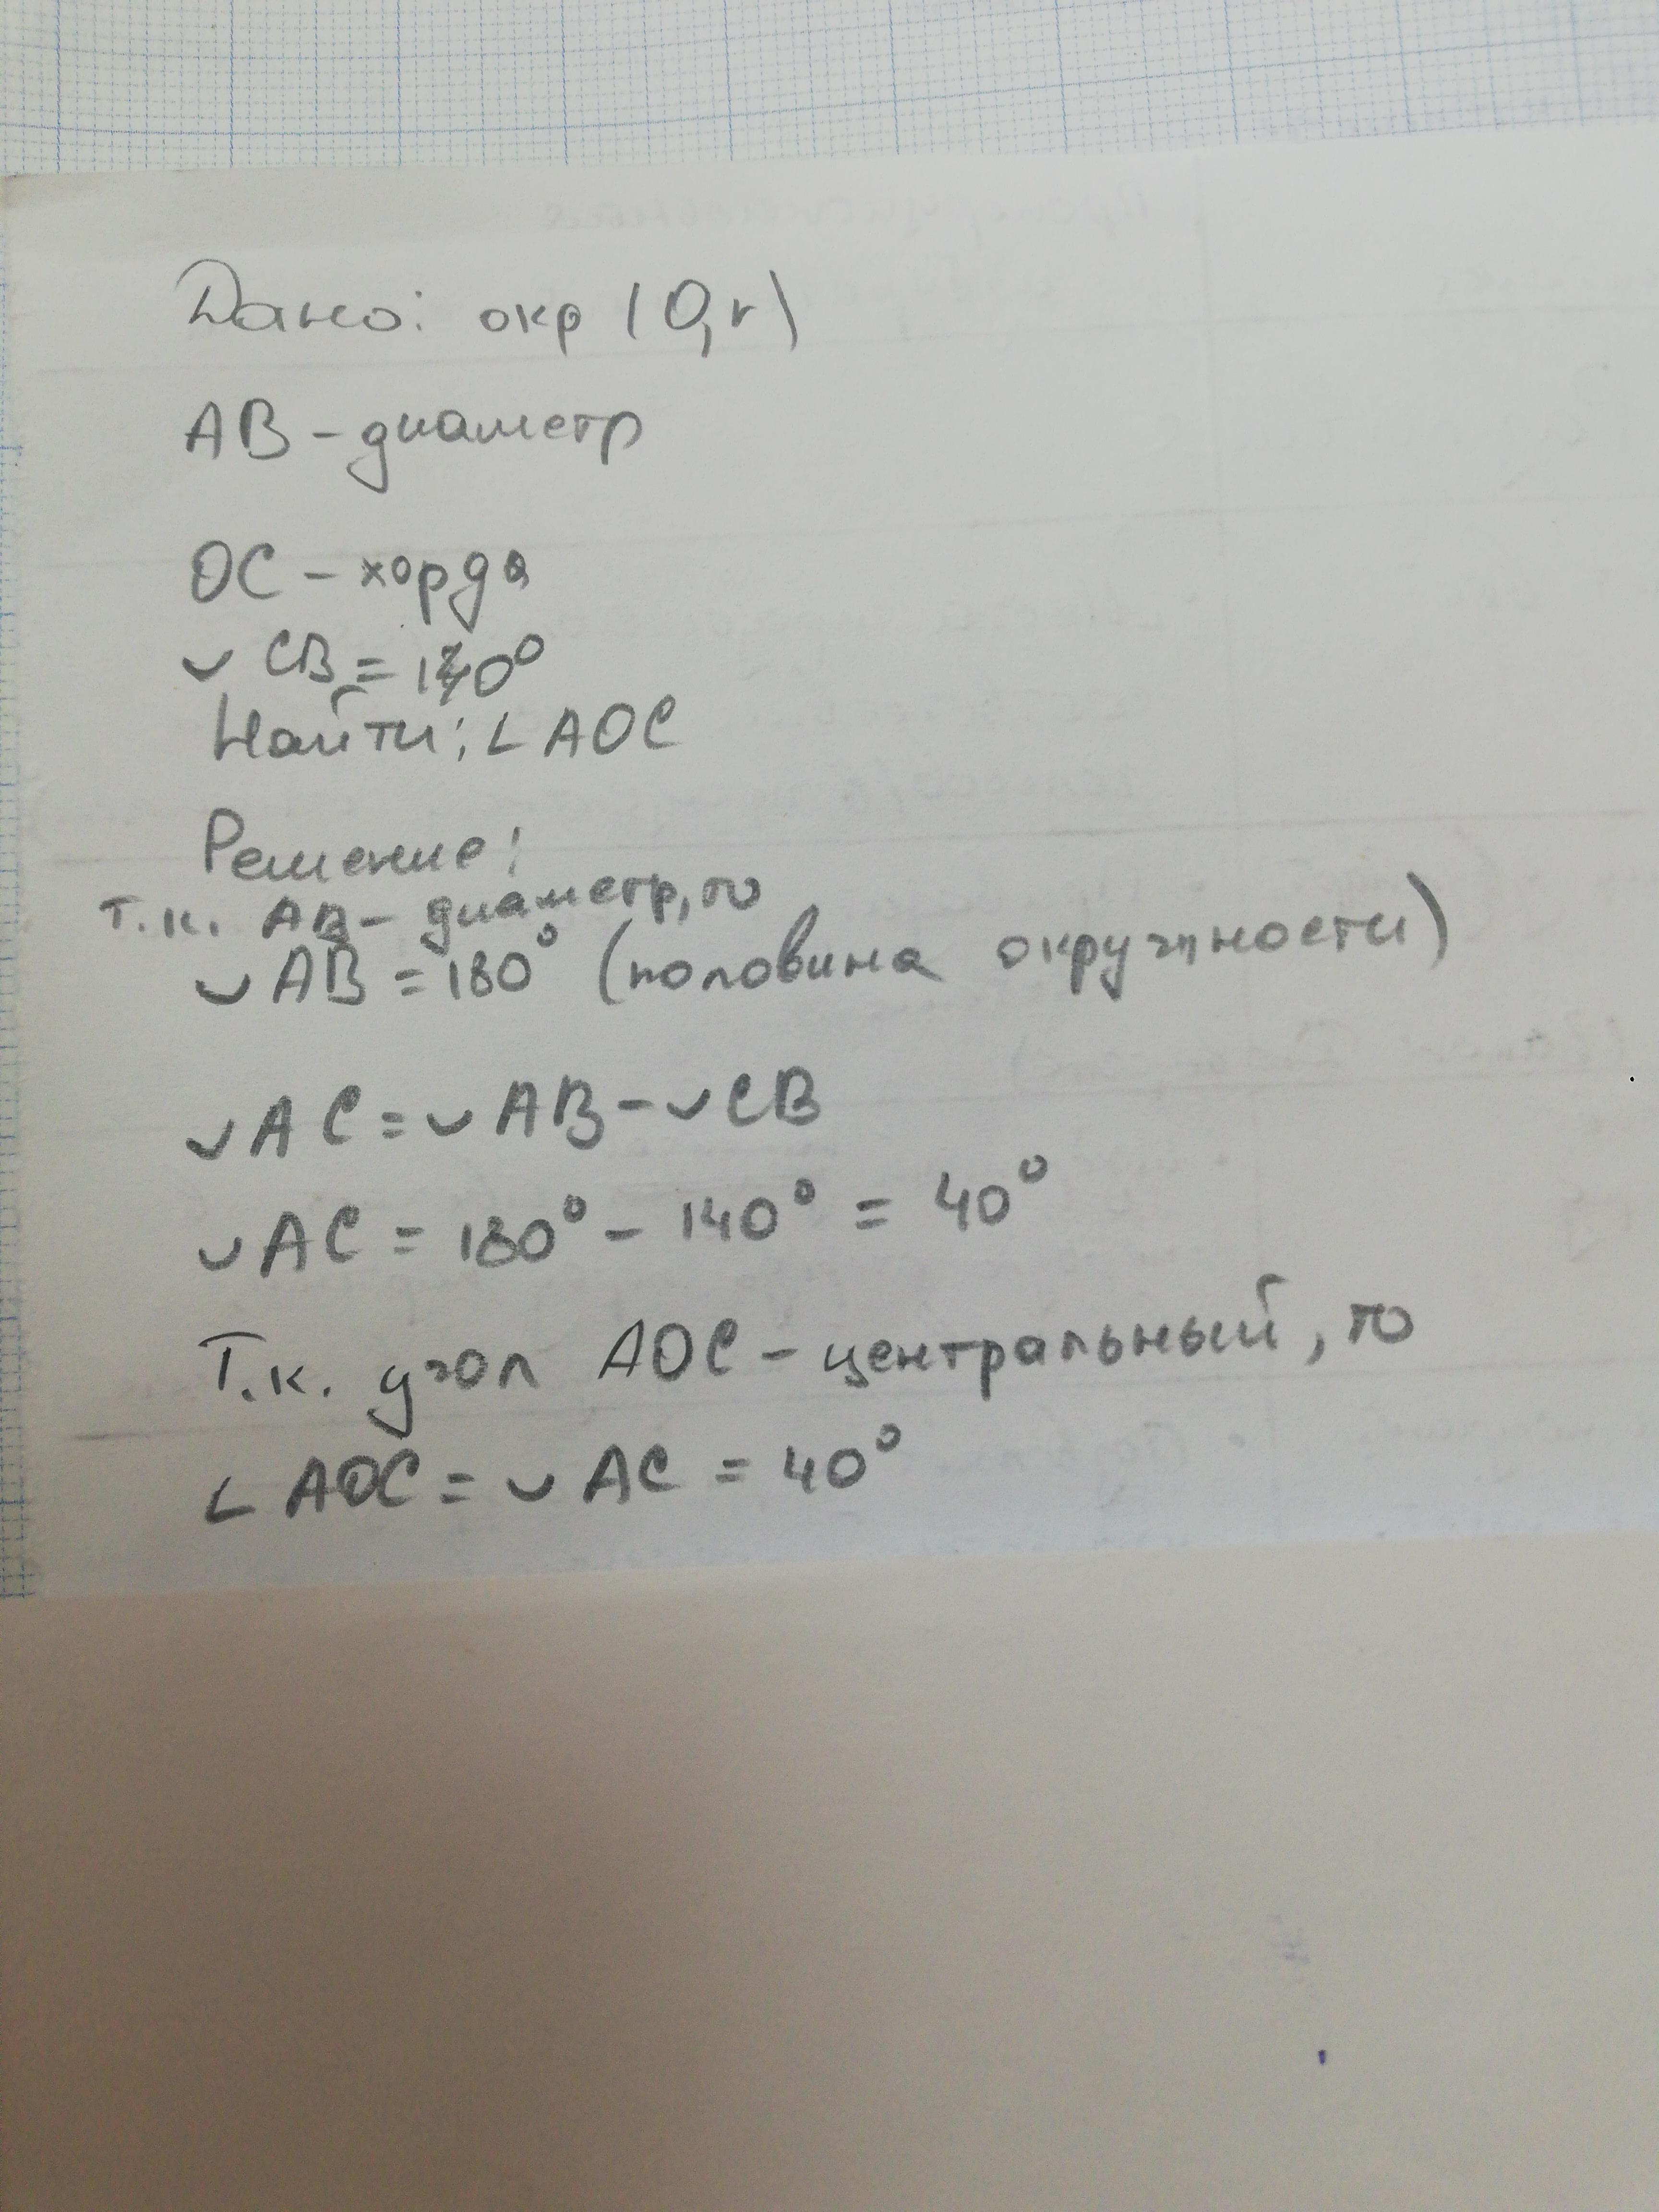 Дано: окр (O, r)
AB - диаметр
OC - хорда
◡ CB = 140°
Найти: ∠ AOC
Решение:
т.к. AB - диаметр, то
◡ AB = 180° (половина окружности)
◡ AC = ◡ AB - ◡ CB
◡ AC = 180° - 140° = 40°
Т.к. угол AOC - центральный, то
∠ AOC = ◡ AC = 40°